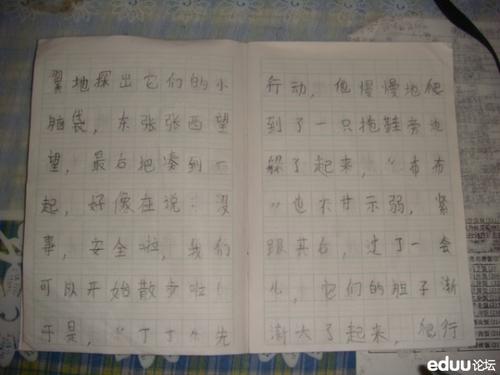 翼地探出它们的小
脑袋，东张张西望
望，最后把凑到一
起，好像在说：没
事，安全啦，我们
可以开始散步啦！
于是，“丁丁”先
行动，他慢慢地爬
到了一只拖鞋旁边
躲了起来，“布布
”也不甘示弱，紧
跟其右，过了一会
儿，它们的胆子渐
渐大了起来，爬行
eduu论坛